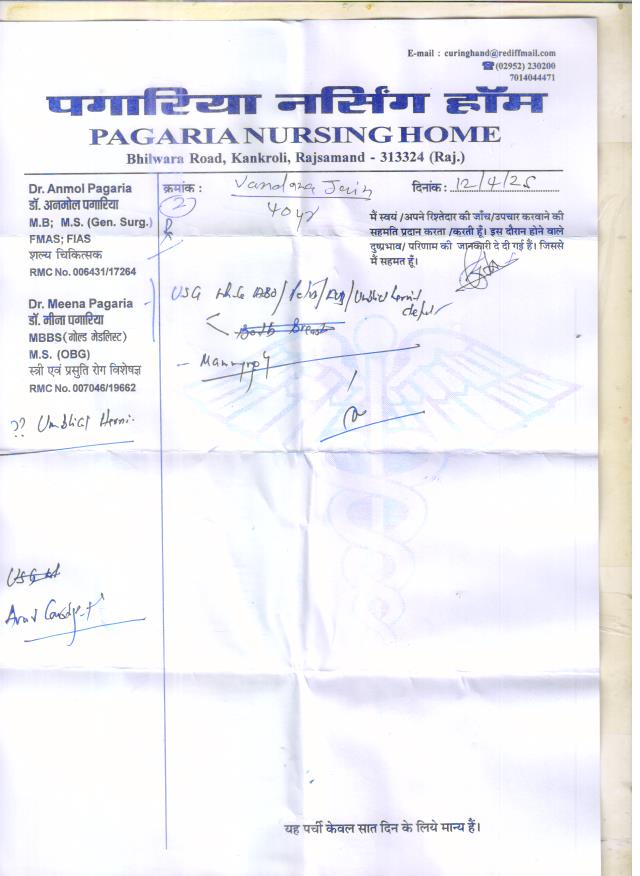 E-mail : curinghand@rediffmail.com
☎(02952) 230200
7014044471
पगारिया नर्सिंग हॉम
PAGARIA NURSING HOME
Bhilwara Road, Kankroli, Rajsamand - 313324 (Raj.)
Dr. Anmol Pagaria
डॉ. अनमोल पगारिया
M.B; M.S. (Gen. Surg.)
FMAS; FIAS
शल्य चिकित्सक
RMC No. 006431/17264
Dr. Meena Pagaria
डॉ. मीना पगारिया
MBBS (गोल्ड मेडलिस्ट)
M.S. (OBG)
स्त्री एवं प्रसुति रोग विशेषज्ञ
RMC No. 007046/19662
?? Umblical Herni.
USG
क्रमांक : Vandana Jain
2
40 yr
दिनांक : 12/4/25
मैं स्वयं /अपने रिश्तेदार की जाँच/उपचार करवाने की
सहमति प्रदान करता /करती हूँ। इस दौरान होने वाले
दुष्प्रभाव/ परिणाम की जानकारी दे दी गई है। जिससे
मैं सहमत हूँ।
USG
Both Breast
यह पर्ची केवल सात दिन के लिये मान्य हैं।